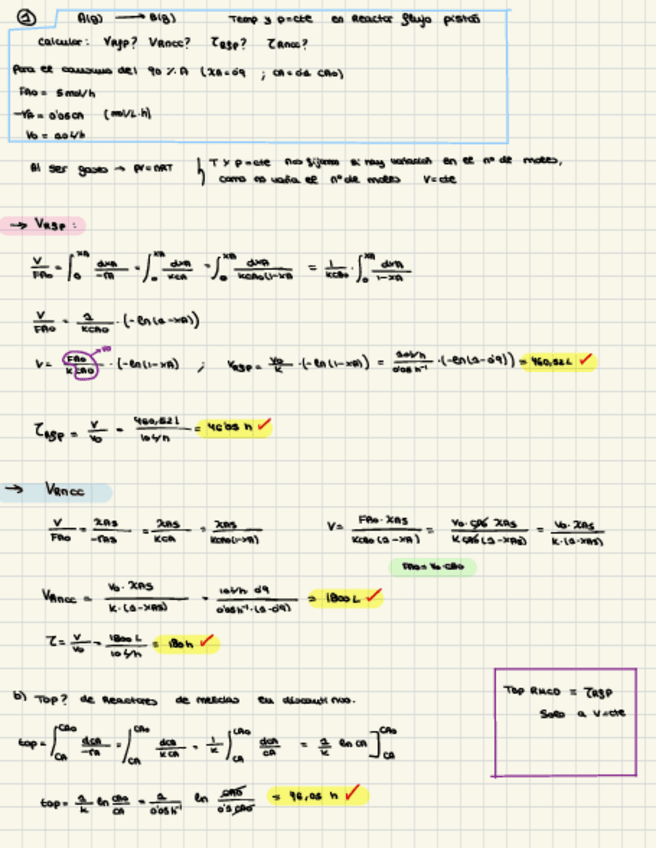 ① A(g) ⟶ B(g) Temp y p=cte en Reactor flujo pistón
calcular: VRFP? VRMCC? τRFP? τRMCC?
Para el consumo del 90 % A (XA=0'9 ; CA=0'1 CA0)
FA0 = 5 mol/h
-rA = 0'05 CA (mol/L·h)
V0 = 10 L/h
Al ser gases → PV=nRT } T y p=cte nos fijamos si hay variación en el nº de moles,
como no varía el nº de moles V=cte
→ VRFP :
V/FA0 = ∫0^XA dXA/-rA = ∫0^XA dXA/KCA = ∫0^XA dXA/KCA0(1-XA) = 1/KCA0 · ∫0^XA dXA/1-XA
V/FA0 = 1/KCA0 · (-ln(1-XA))
V= FA0/KCA0 →V0 · (-ln(1-XA)) ; VRFP = V0/K · (-ln(1-XA)) = 10L/h/0'05 h⁻¹ · (-ln(1-0'9)) = 460,52 L ✓
τRFP = V/V0 = 460,52 L/10 L/h = 46'05 h ✓
→ VRMCC
V/FA0 = XAS/-rAS = XAS/KCA = XAS/KCA0(1-XA) V= FA0·XAS/KCA0(1-XA) = V0·CA0·XAS/KCA0(1-XAS) = V0·XAS/K·(1-XAS)
FA0=V0·CA0
VRMCC = V0·XAS/K·(1-XAS) = 10L/h·0'9/0'05h⁻¹·(1-0'9) = 1800 L ✓
τ = V/V0 = 1800 L/10 L/h = 180 h ✓
b) Top? de Reactores de mezclas en discontinuo.
Top RMCD = τRFP
Solo a V=cte
top = ∫CA^CA0 dCA/-rA = ∫CA^CA0 dCA/KCA = 1/K ∫CA^CA0 dCA/CA = 1/K ln CA ]CA^CA0
top = 1/K ln CA0/CA = 1/0'05h⁻¹ ln CA0/0'1 CA0 = 46,05 h ✓